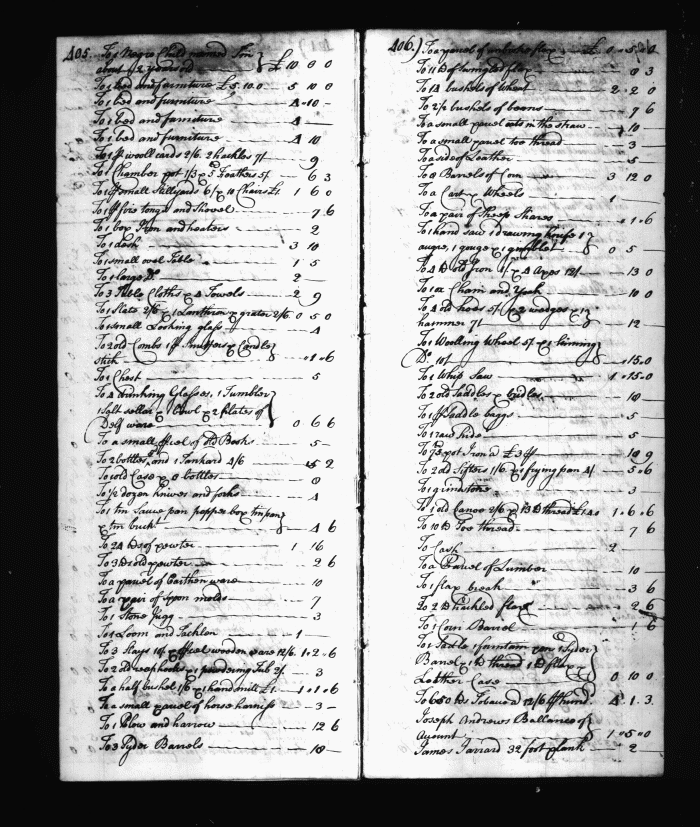 405. To 1 Negro Child named Tom
about 1/2 years old £ 10 0 0
To 1 bed and furniture £5.10.0 5 10 0
To 1 bed and furniture 4-10-
To 1 bed and furniture 4
To 1 bed and furniture 4 10
To 1 pr wooll cards 2/6 2 hackles 7/ 9
To 1 Chamber pot 1/3 5 6 3
To 1 small Stillyards 6/ 10 Chairs £1 1 6 0
To 1 pr fire tongs and Shovel 7 6
To 1 box Iron and heaters 2
To 1 desk 3 10
To 1 small ovel Table 1 5
To 1 large Do 2
To 3 Table Cloths & 4 Towels 2 9
To 1 Slate 2/6 & 1 Lanthorn & grater 2/6 0 5 0
To 1 small Looking glass 4
To 2 old Combs 1 pr Snuffers & Candle
stick 1 6
To 1 Chest 5
To 4 drinking Glasses, 1 Tumbler
1 Salt sellar & 1 bowl & 2 plates of
Delf ware 0 6 6
To a small pcel of old Books 5
To 2 bottles and 1 Tankard 4/6 5 2
To 1 old Case & 8 bottles 8
To 1/2 dozen knives and forks 4
To 1 tin Sauce pan pepper box tin pan
& tin buckt 4 6
To 24 lb of pewter 1 16
To 3 lb old pewter 2 6
To a parcel of Earthen ware 10
To a pair of Spoon molds 7
To 1 Stone Jugg 3
To 1 Loom and Tacklen 1
To 3 Slays 10/ & pcel wooden ware 12/6 1 2 6
To 2 old reaphooks & 1 powdering Tub 2/ 3
To a half bushel 1/6 & 1 hand mill £1 1 1 6
To a small parcel of horse harness 3
To 1 Plow and harrow 12 6
To 3 Syder Barrels 10
406. To a parcel of unbroke flax £ 0 5 0
To 11 lb of swingled flax 0 3
To 14 bushels of Wheat 2 2 0
To 2 1/2 bushels of beans 7 6
To a small parcel oats in the straw 10
To a small parcel tow thread 3
To a side of Leather 5
To 8 Barrels of Corn 3 12 0
To a Cart & Wheels 1
To a pair of Sheep Shares 1 6
To 1 hand saw 1 drawing knife 1
augre, 1 gouge & 1 gimblet 0 5
To 4 lb old Iron 1/ & 4 Axes 12/ 13 0
To 1 ox Chain and Yoak 10 0
To 4 old hoes 5/ & 2 wedges & 1
hammer 7/ 12
To 1 Woolling Wheel 5/ & 1 Spinning
Do 10/ 15 0
To 1 Whip Saw 1 15 0
To 2 old Saddles & bridles 10
To 1 pr Saddle baggs 5
To 1 raw hide 5
To 75 pot Iron a £3 10 9
To 2 old Sifters 1/6 & 1 frying pan 4/ 5 6
To 1 grindstone 3
To 1 old Canoe 2/6 & 13 lb thread £1.4.0 1 6 6
To 10 lb Tow thread 7 6
To Cash 2
To a Parcel of Lumber 10
To 1 flax break 3 6
To 2 lb hackled flax 2 6
To 1 Corn Barrel 1 6
To 1 Table 1 1 Syder
Barrel 1 lb thread 1 lb flax
Leather Case 0 10 0
To 650 lbs Tobacco a 12/6 pr hund. 4 1 3
Joseph Andrews Ballance of
Account 1 5 0
James Jarrard 32 foot plank 2